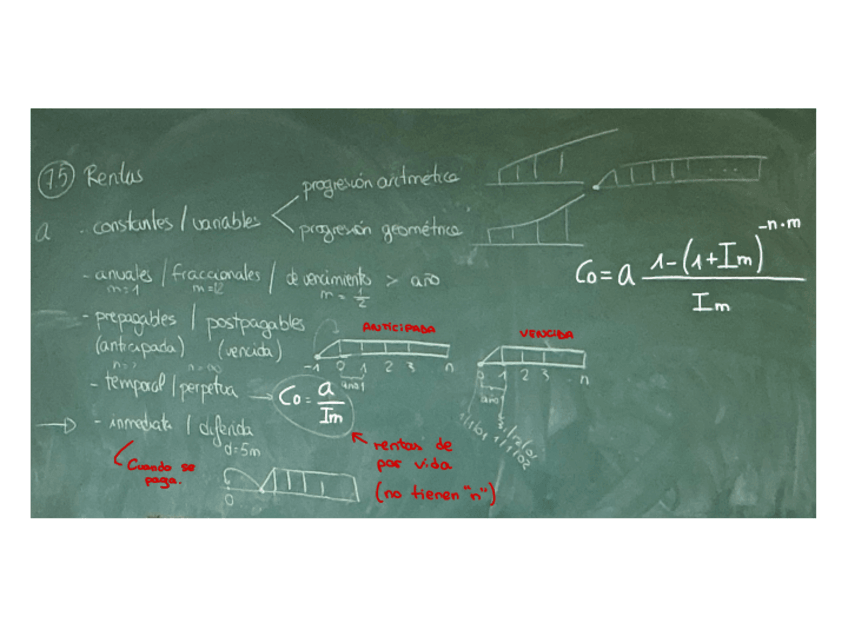 7.5 Rentas
progresión aritmética
a - constantes / variables
progresión geométrica
- anuales / fraccionales / de vencimiento > año
m=1 m=12 m=1/2
Co = a (1-(1+Im)^-n·m) / Im
- prepagables / postpagables
(anticipada) (vencida)
ANTICIPADA
-1 0 1 2 3 n
año 1
VENCIDA
0 1 2 3 n
año
- temporal / perpetua → Co = a/Im
→ - inmediata / diferida
d=5m
Cuando se
paga.
0
rentas de
por vida
(no tienen "n")